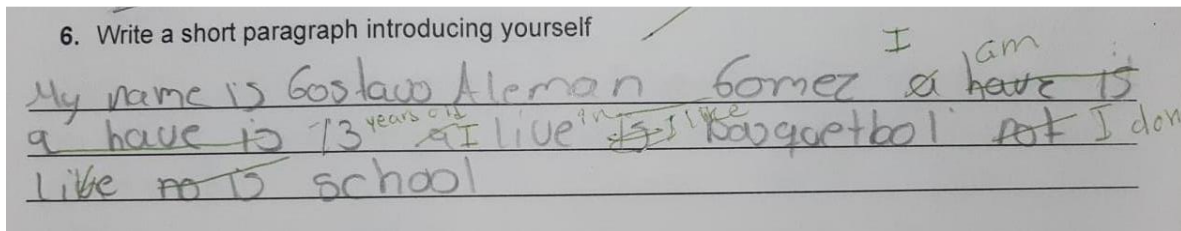 6. Write a short paragraph introducing yourself
I am
My name is Gostavo Aleman Gomez a have is
years old in like
a have is 13 I live is I basquetbol not I don
like no is school